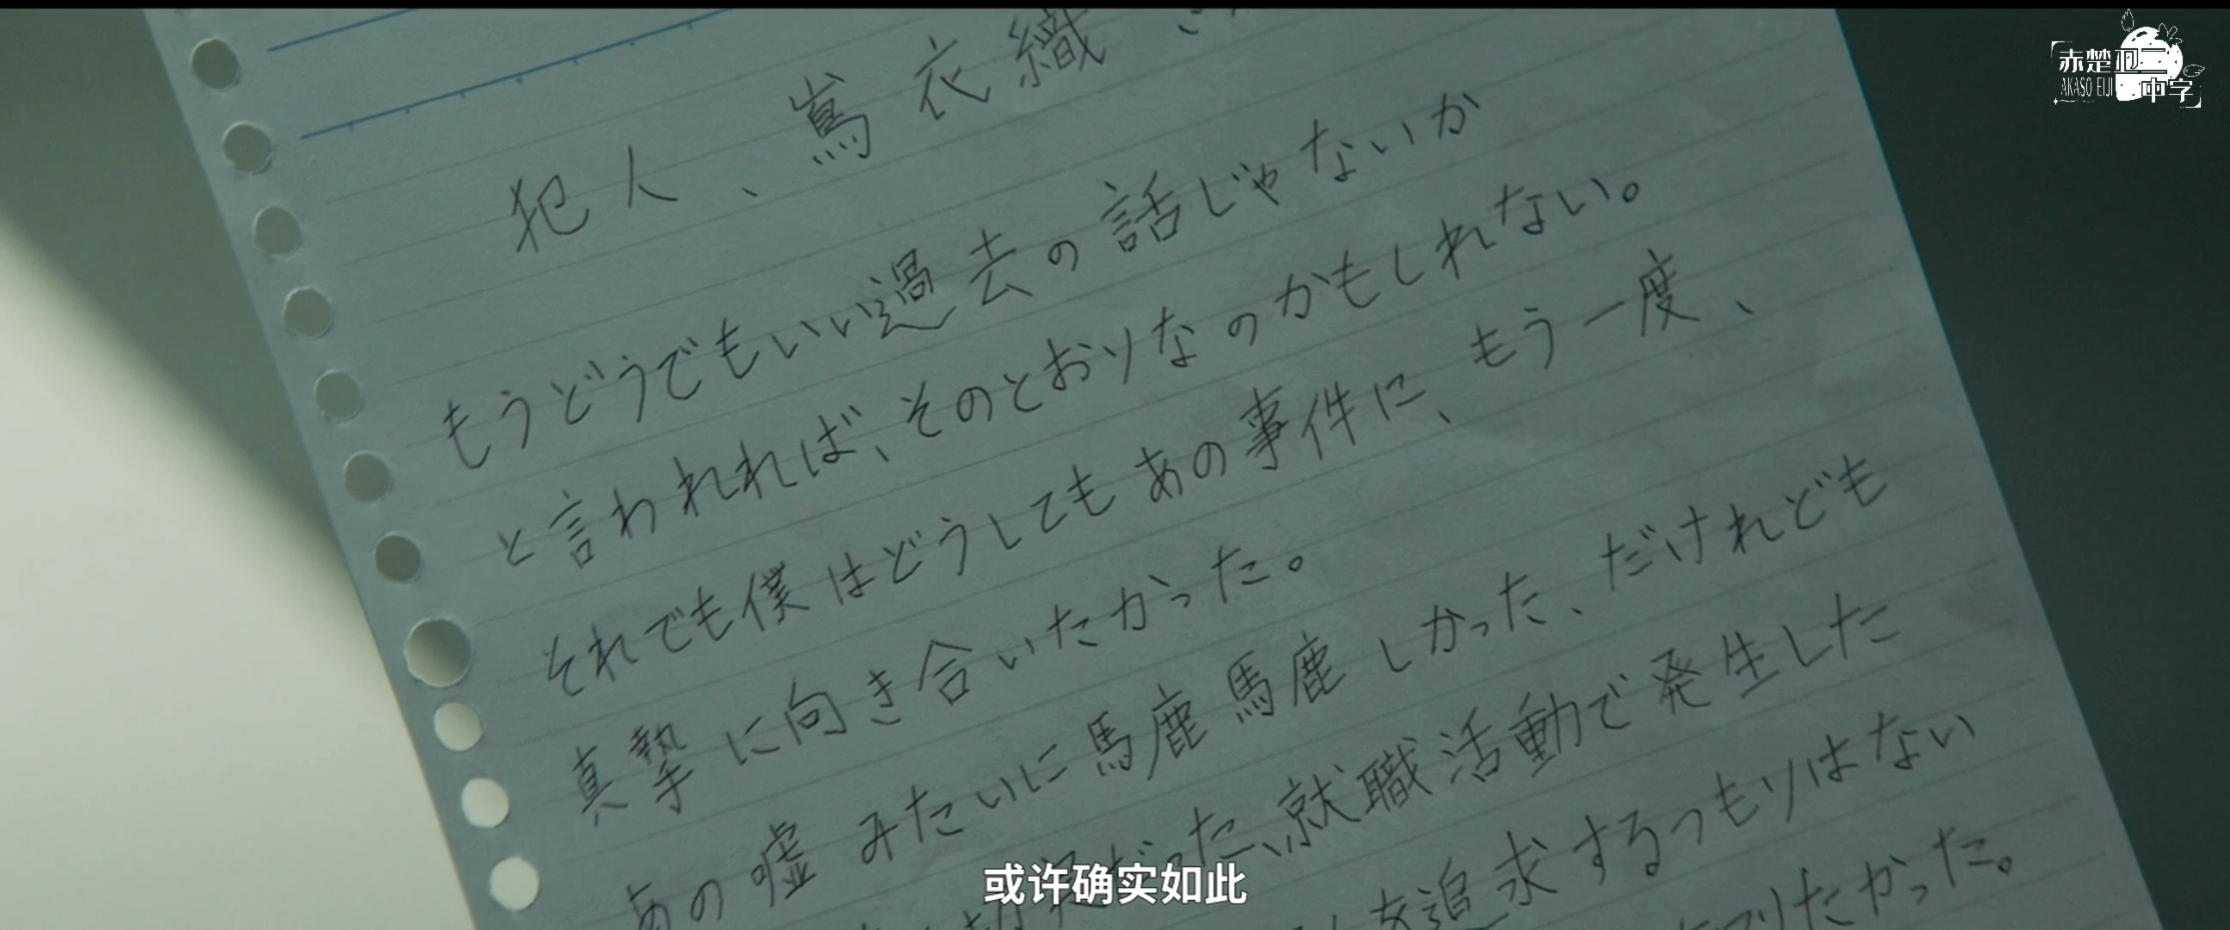 犯人、嶌衣織さ
もうどうでもいい過去の話じゃないか
と言われれば、そのとおりなのかもしれない。
それでも僕はどうしてもあの事件に、もう一度、
真摯に向き合いたかった。
あの嘘みたいに馬鹿馬鹿しかった、だけれども
だった、就職活動で発生した
を追求するつもりはない
りたかった。
或许确实如此
赤楚卫二
AKASO EIJI 中字